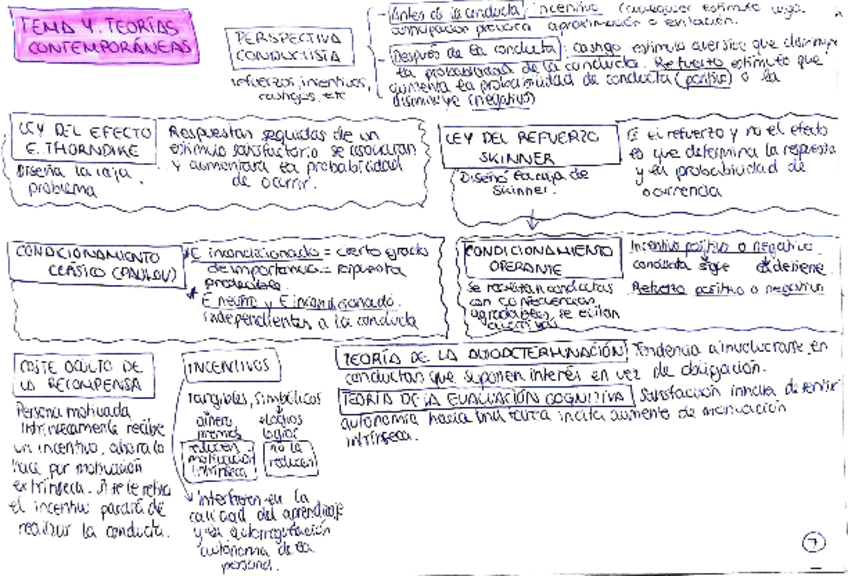 TEMA 4. TEORÍAS
CONTEMPORÁNEAS
PERSPECTIVA
CONDUCTISTA
refuerzos, incentivos,
castigos, etc
Antes de la conducta: incentivo (cualquier estímulo cuya
anticipación provoca aproximación o evitación.
Después de la conducta: castigo estímulo aversivo que disminuye
la probabilidad de la conducta. Refuerzo estímulo que
aumenta la probabilidad de conducta (positivo) o la
disminuye (negativo)
LEY DEL EFECTO
E. THORNDIKE
Diseña la caja
problema
Respuestas seguidas de un
estímulo satisfactorio se asociarán
y aumentará la probabilidad
de ocurrir.
LEY DEL REFUERZO
SKINNER
Diseñó la caja de
Skinner.
Es el refuerzo y no el efecto
lo que determina la respuesta
y la probabilidad de
ocurrencia
CONDICIONAMIENTO
CLÁSICO (PAULOV)
E incondicionado = cierto grado
de importancia = respuesta
E neutro y E incondicionado.
independientes a la conducta
CONDICIONAMIENTO
OPERANTE
Se realizan conductas
con consecuencias
agradables, se evitan
aversivas
Incentivo positivo o negativo
conducta sigue se detiene
Refuerzo positivo o negativo
COSTE OCULTO DE
LA RECOMPENSA
Persona motivada
intrínsecamente recibe
un incentivo, ahora lo
hace por motivación
extrínseca. Si se le retira
el incentivo parará de
realizar la conducta.
INCENTIVOS
Tangibles, simbólicos
dinero elogios
premios logros
reducen no la
motivación reducen
intrínseca
Interfieren en la
calidad del aprendizaje
y la autorregulación
autónoma de la
persona.
TEORÍA DE LA AUTODETERMINACIÓN Tendencia a involucrarse en
conductas que suponen interés en vez de obligación.
TEORÍA DE LA EVALUACIÓN COGNITIVA Satisfacción innata de sentir
autonomía hacia una tarea incita aumento de motivación
intrínseca.
7